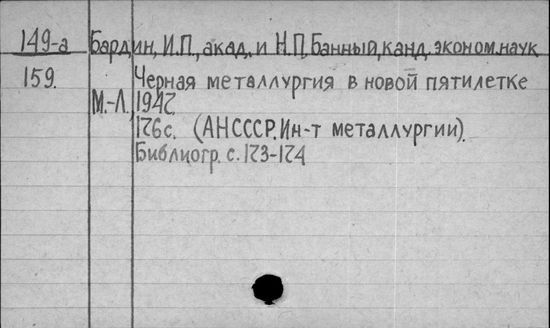 149-а Бардин, И.П., акад. и Н.П. Банный, канд. эконом. наук
159. Черная металлургия в новой пятилетке
М.-Л., 1947.
176с. (АНСССР. Ин-т металлургии).
Библиогр. с. 173-174